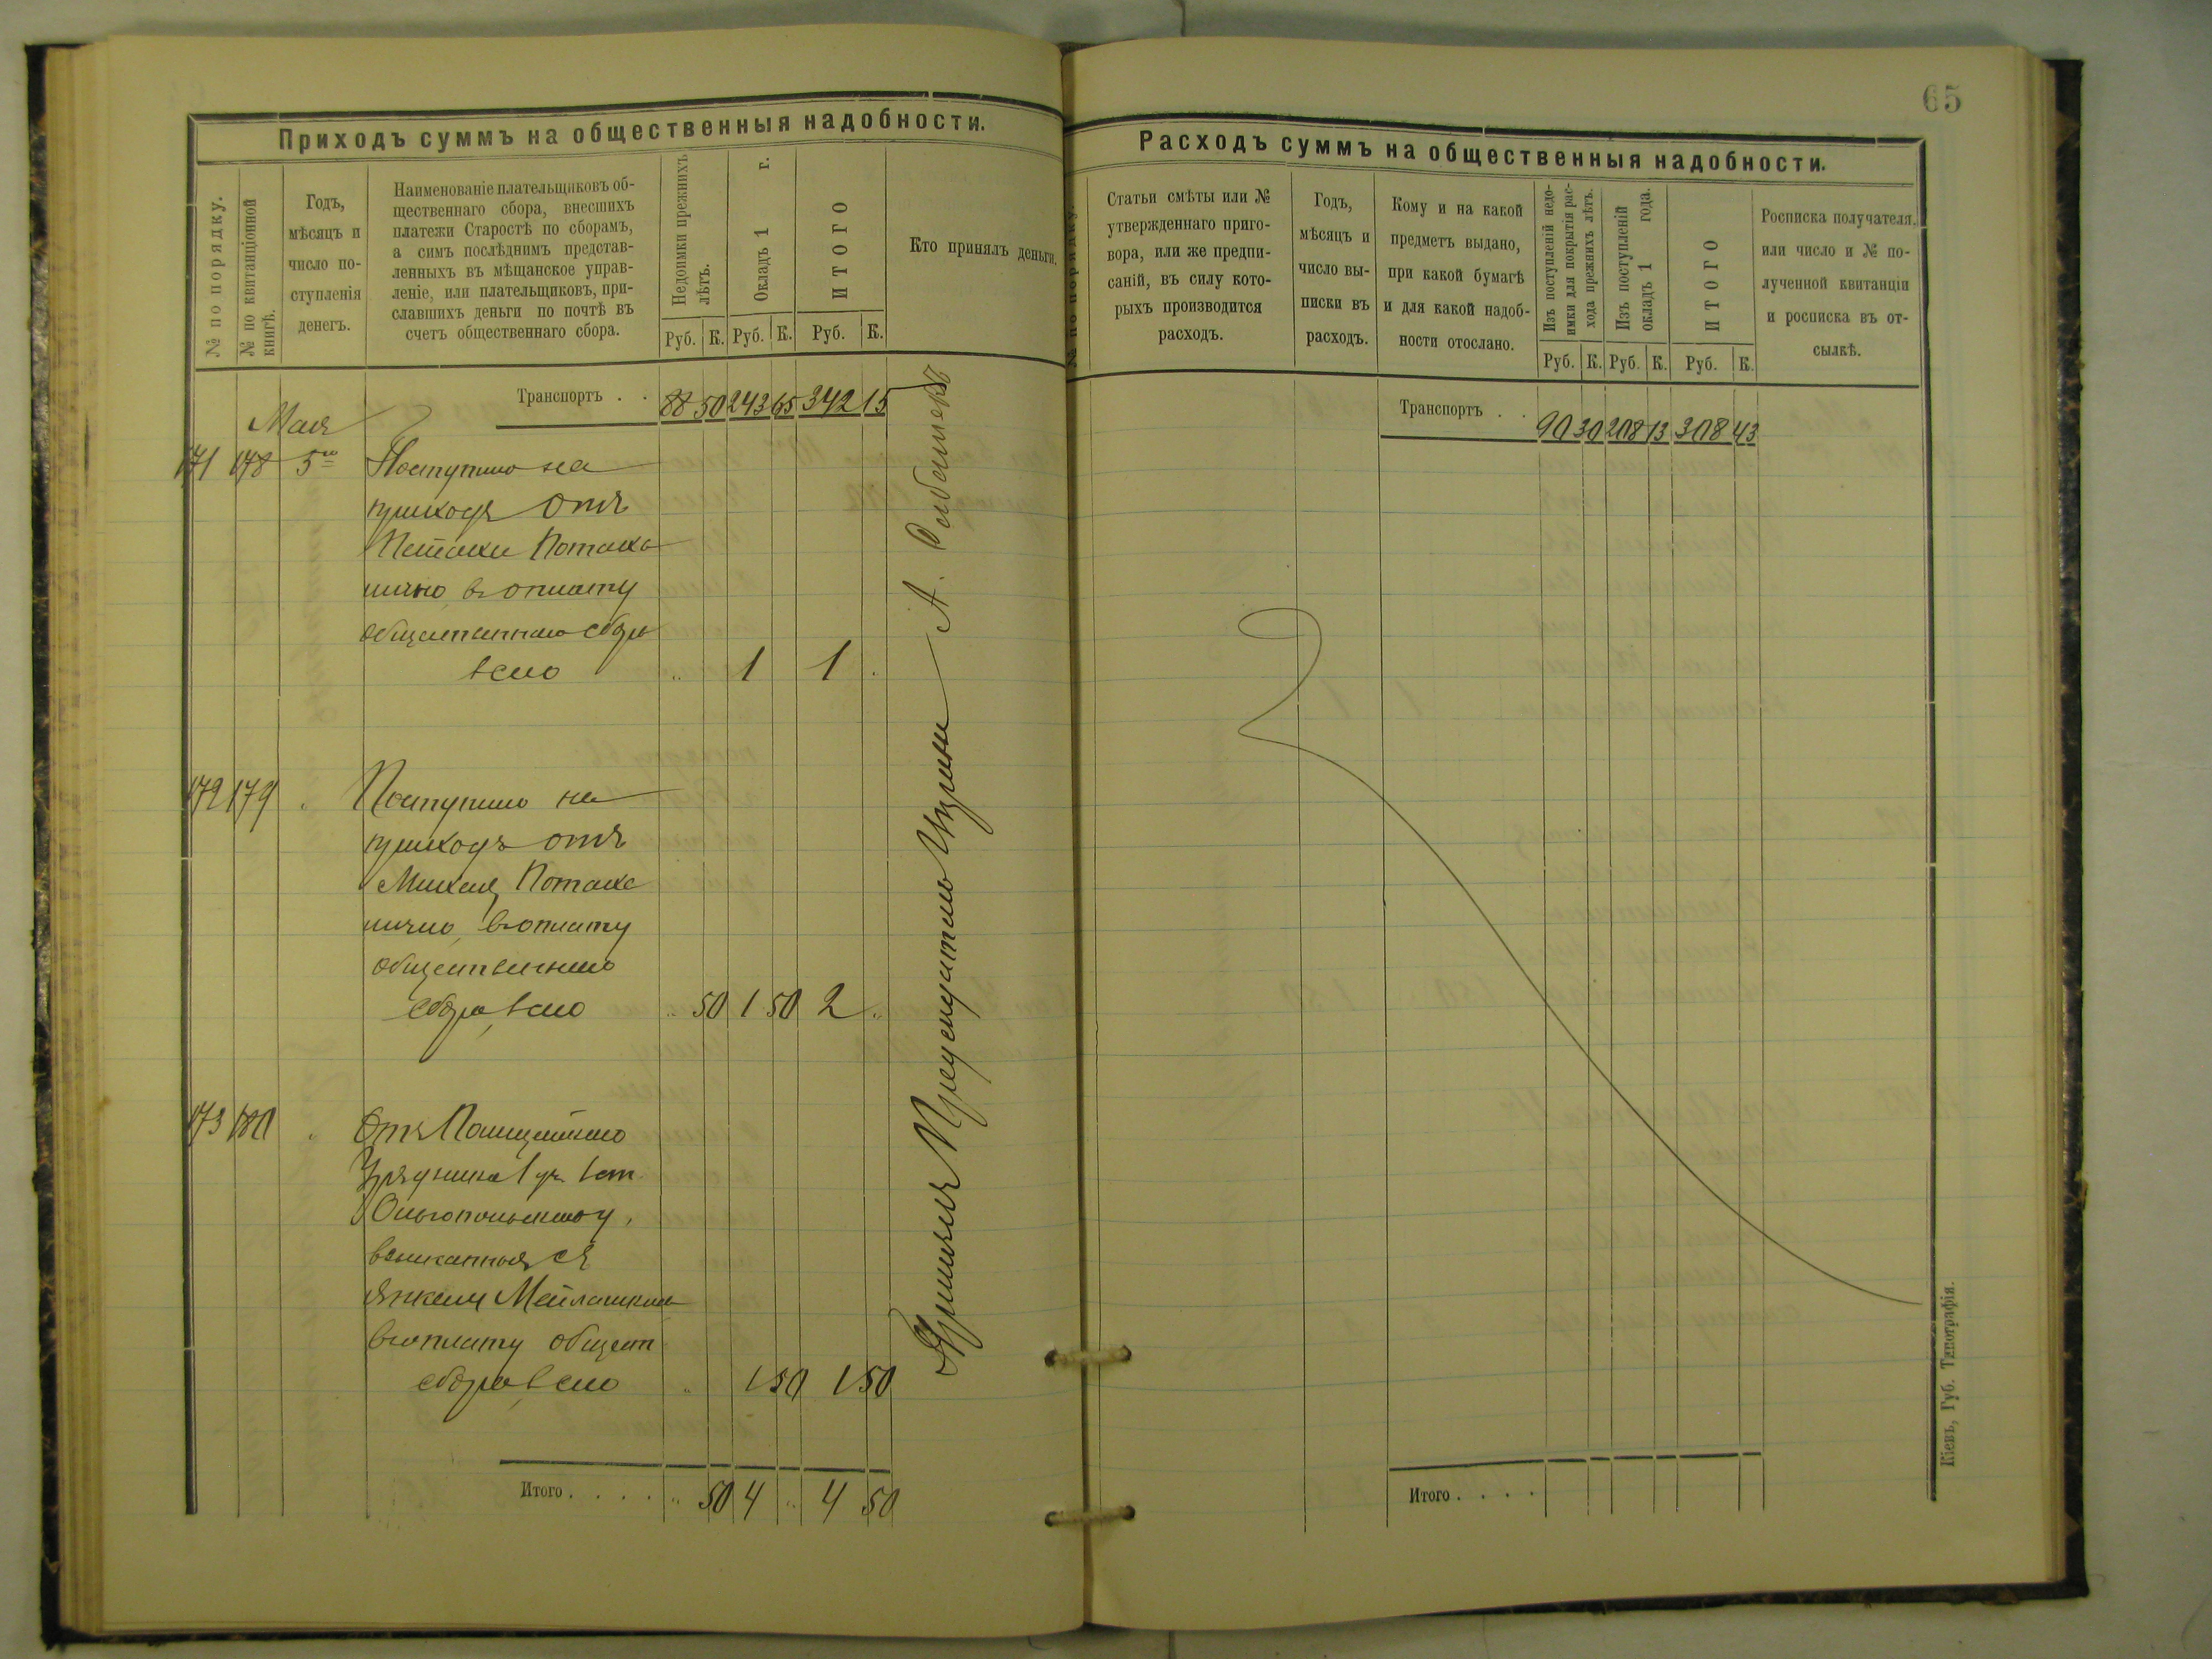 65
Приходъ суммъ на общественныя надобности.
№ по порядку.
№ по квитанціонной
книгѣ.
Годъ,
мѣсяцъ и
число по-
ступленія
денегъ.
Наименованіе плательщиковъ об-
щественнаго сбора, внесшихъ
платежи Старостѣ по сборамъ,
а симъ послѣднимъ представ-
ленныхъ въ мѣщанское управ-
леніе, или плательщиковъ, при-
славшихъ деньги по почтѣ въ
счетъ общественнаго сбора.
Недоимки прежнихъ
лѣтъ.
Окладъ 1 г.
ИТОГО
Кто принялъ деньги.
Руб. К. Руб. К. Руб. К.
Транспортъ . . 88 50 243 65 342 15
Мая
171 178 5го Поступило на
приходъ отъ
Потака
лично в оплату
общественнаго сбора
всего " 1 1 .
172 179 " Поступило на
приходъ отъ
Михеля Потака
лично, в оплату
общественнаго
сбора, всего " 50 1 50 2 "
173 180 " Отъ Полицейскаго
Урядника 1 уч. 1 ст.
Ольгопольскаго у.
взысканныя съ
Янкеля
в оплату общест
сбора, всего " 1 50 1 50
Итого . . . . " 50 4 " 4 50
Принялъ Предсѣдатель Управы А.
Расходъ суммъ на общественныя надобности.
№ по порядку.
Статьи смѣты или №
утвержденнаго приго-
вора, или же предпи-
саній, въ силу кото-
рыхъ производится
расходъ.
Годъ,
мѣсяцъ и
число вы-
писки въ
расходъ.
Кому и на какой
предметъ выдано,
при какой бумагѣ
и для какой надоб-
ности отослано.
Изъ поступленій недо-
имки для покрытія рас-
хода прежнихъ лѣтъ.
Изъ поступленій
окладъ 1 года.
ИТОГО
Росписка получателя,
или число и № по-
лученной квитанціи
и росписка въ от-
сылкѣ.
Руб. К. Руб. К. Руб. К.
Транспортъ . . 90 30 208 13 308 43
Итого . . . .
Кіевъ, Губ. Типографія.